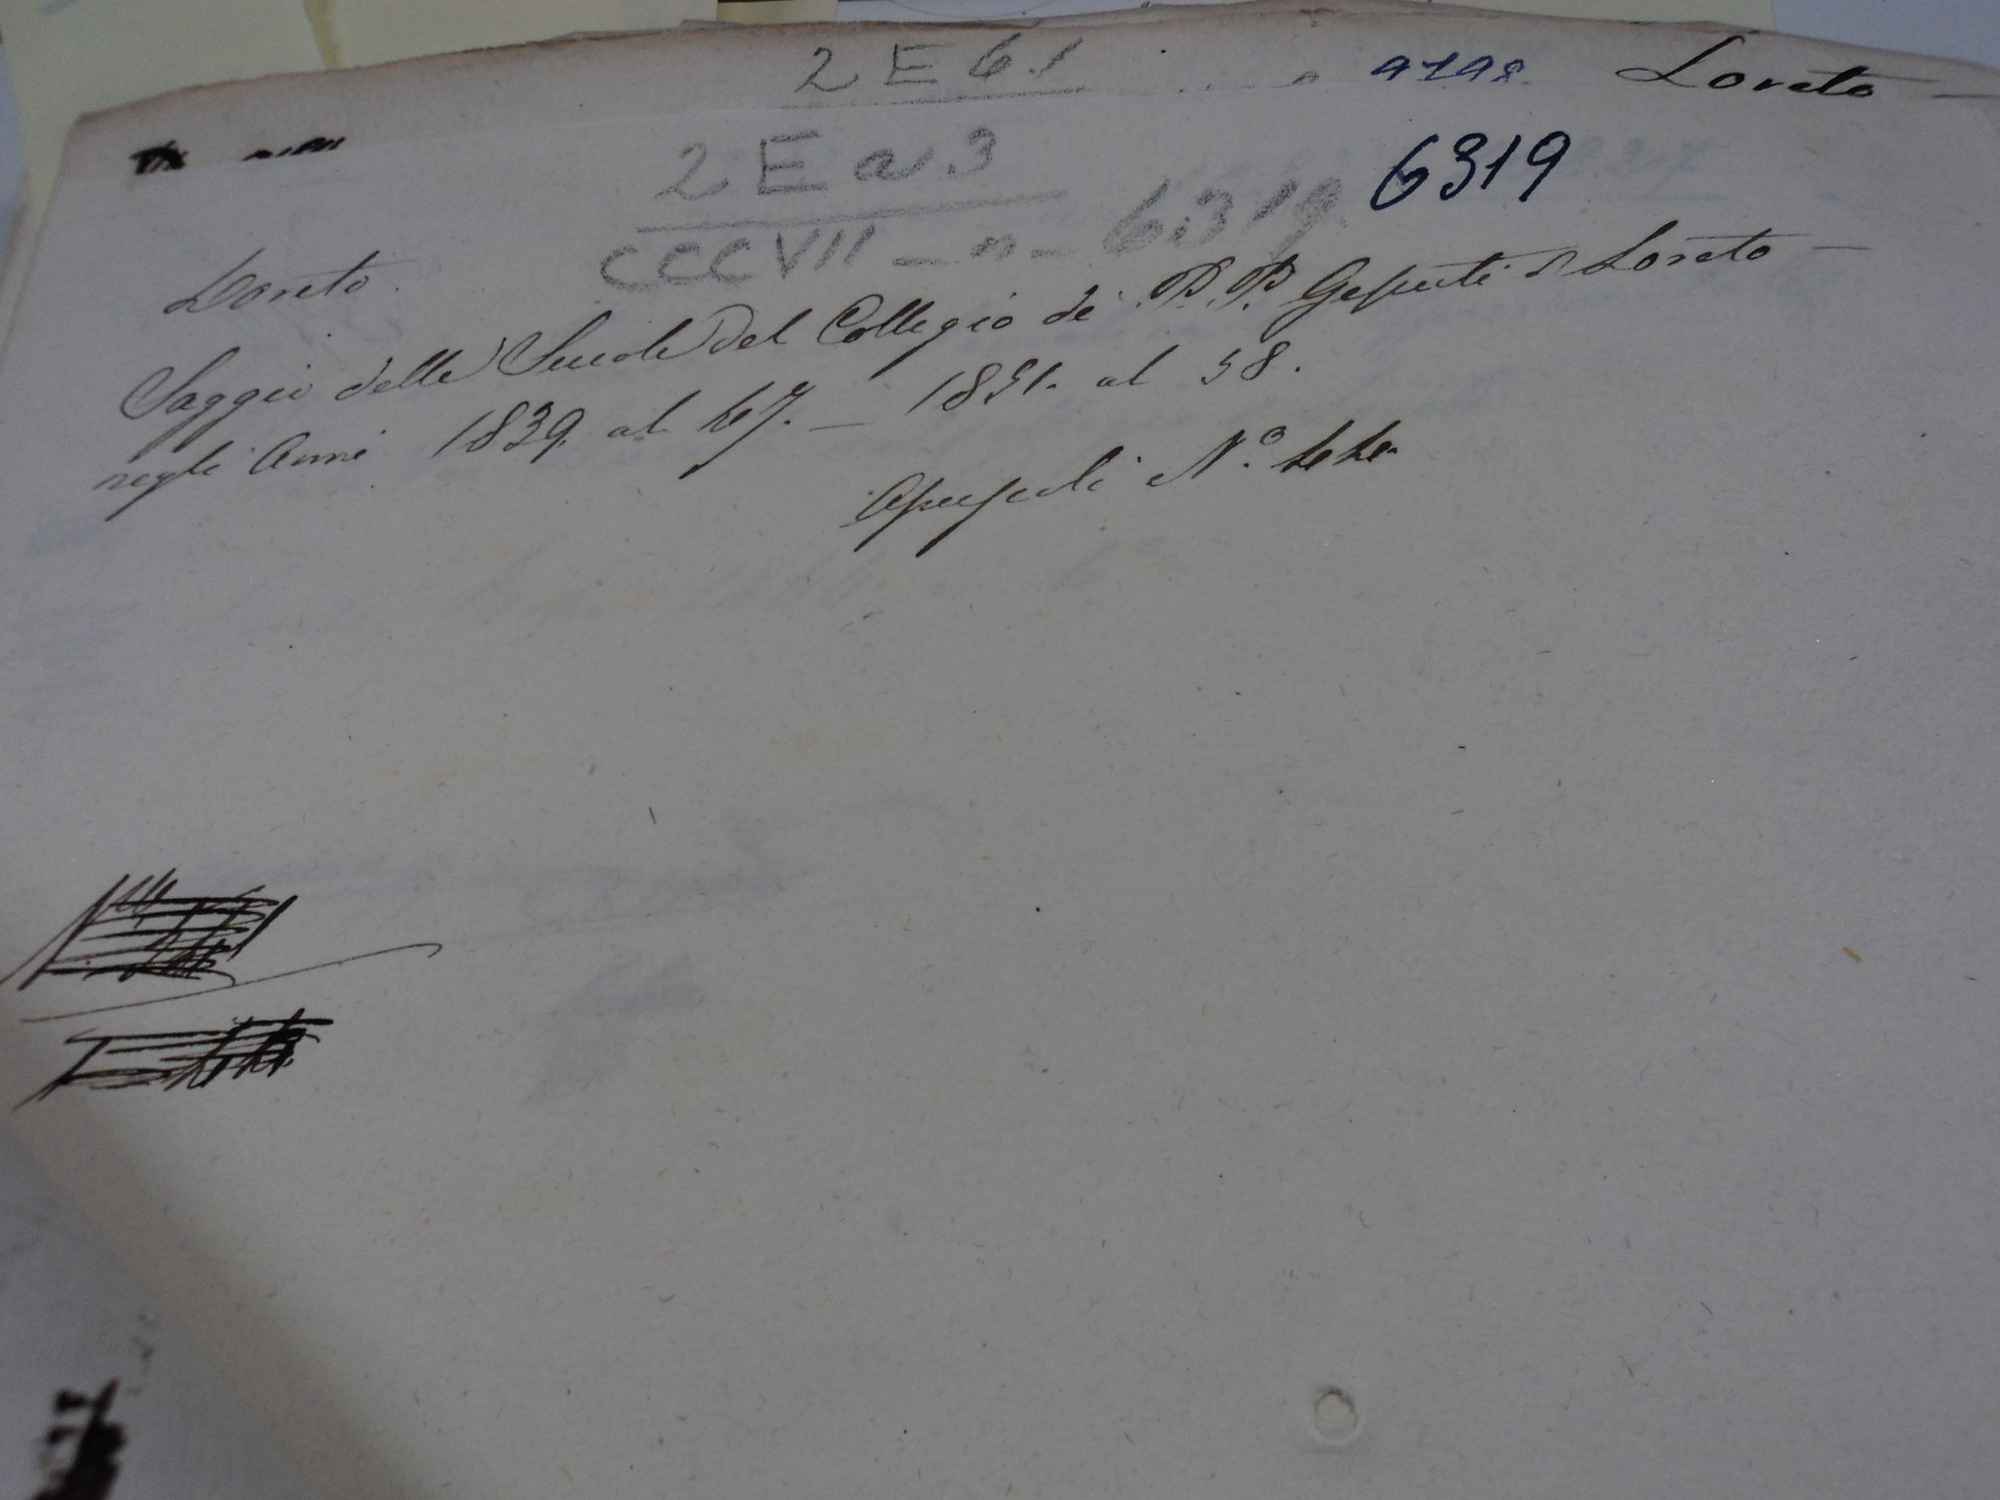 2 E 6.1
Loreto
2 E a. 3
CCCVII - n - 6319.
6319
Loreto.
Saggio delle Scuole del Collegio de' P.P. Gesuiti di Loreto
negli Anni 1839. al 47. — 1851. al 58.
Opuscoli N.º 44.